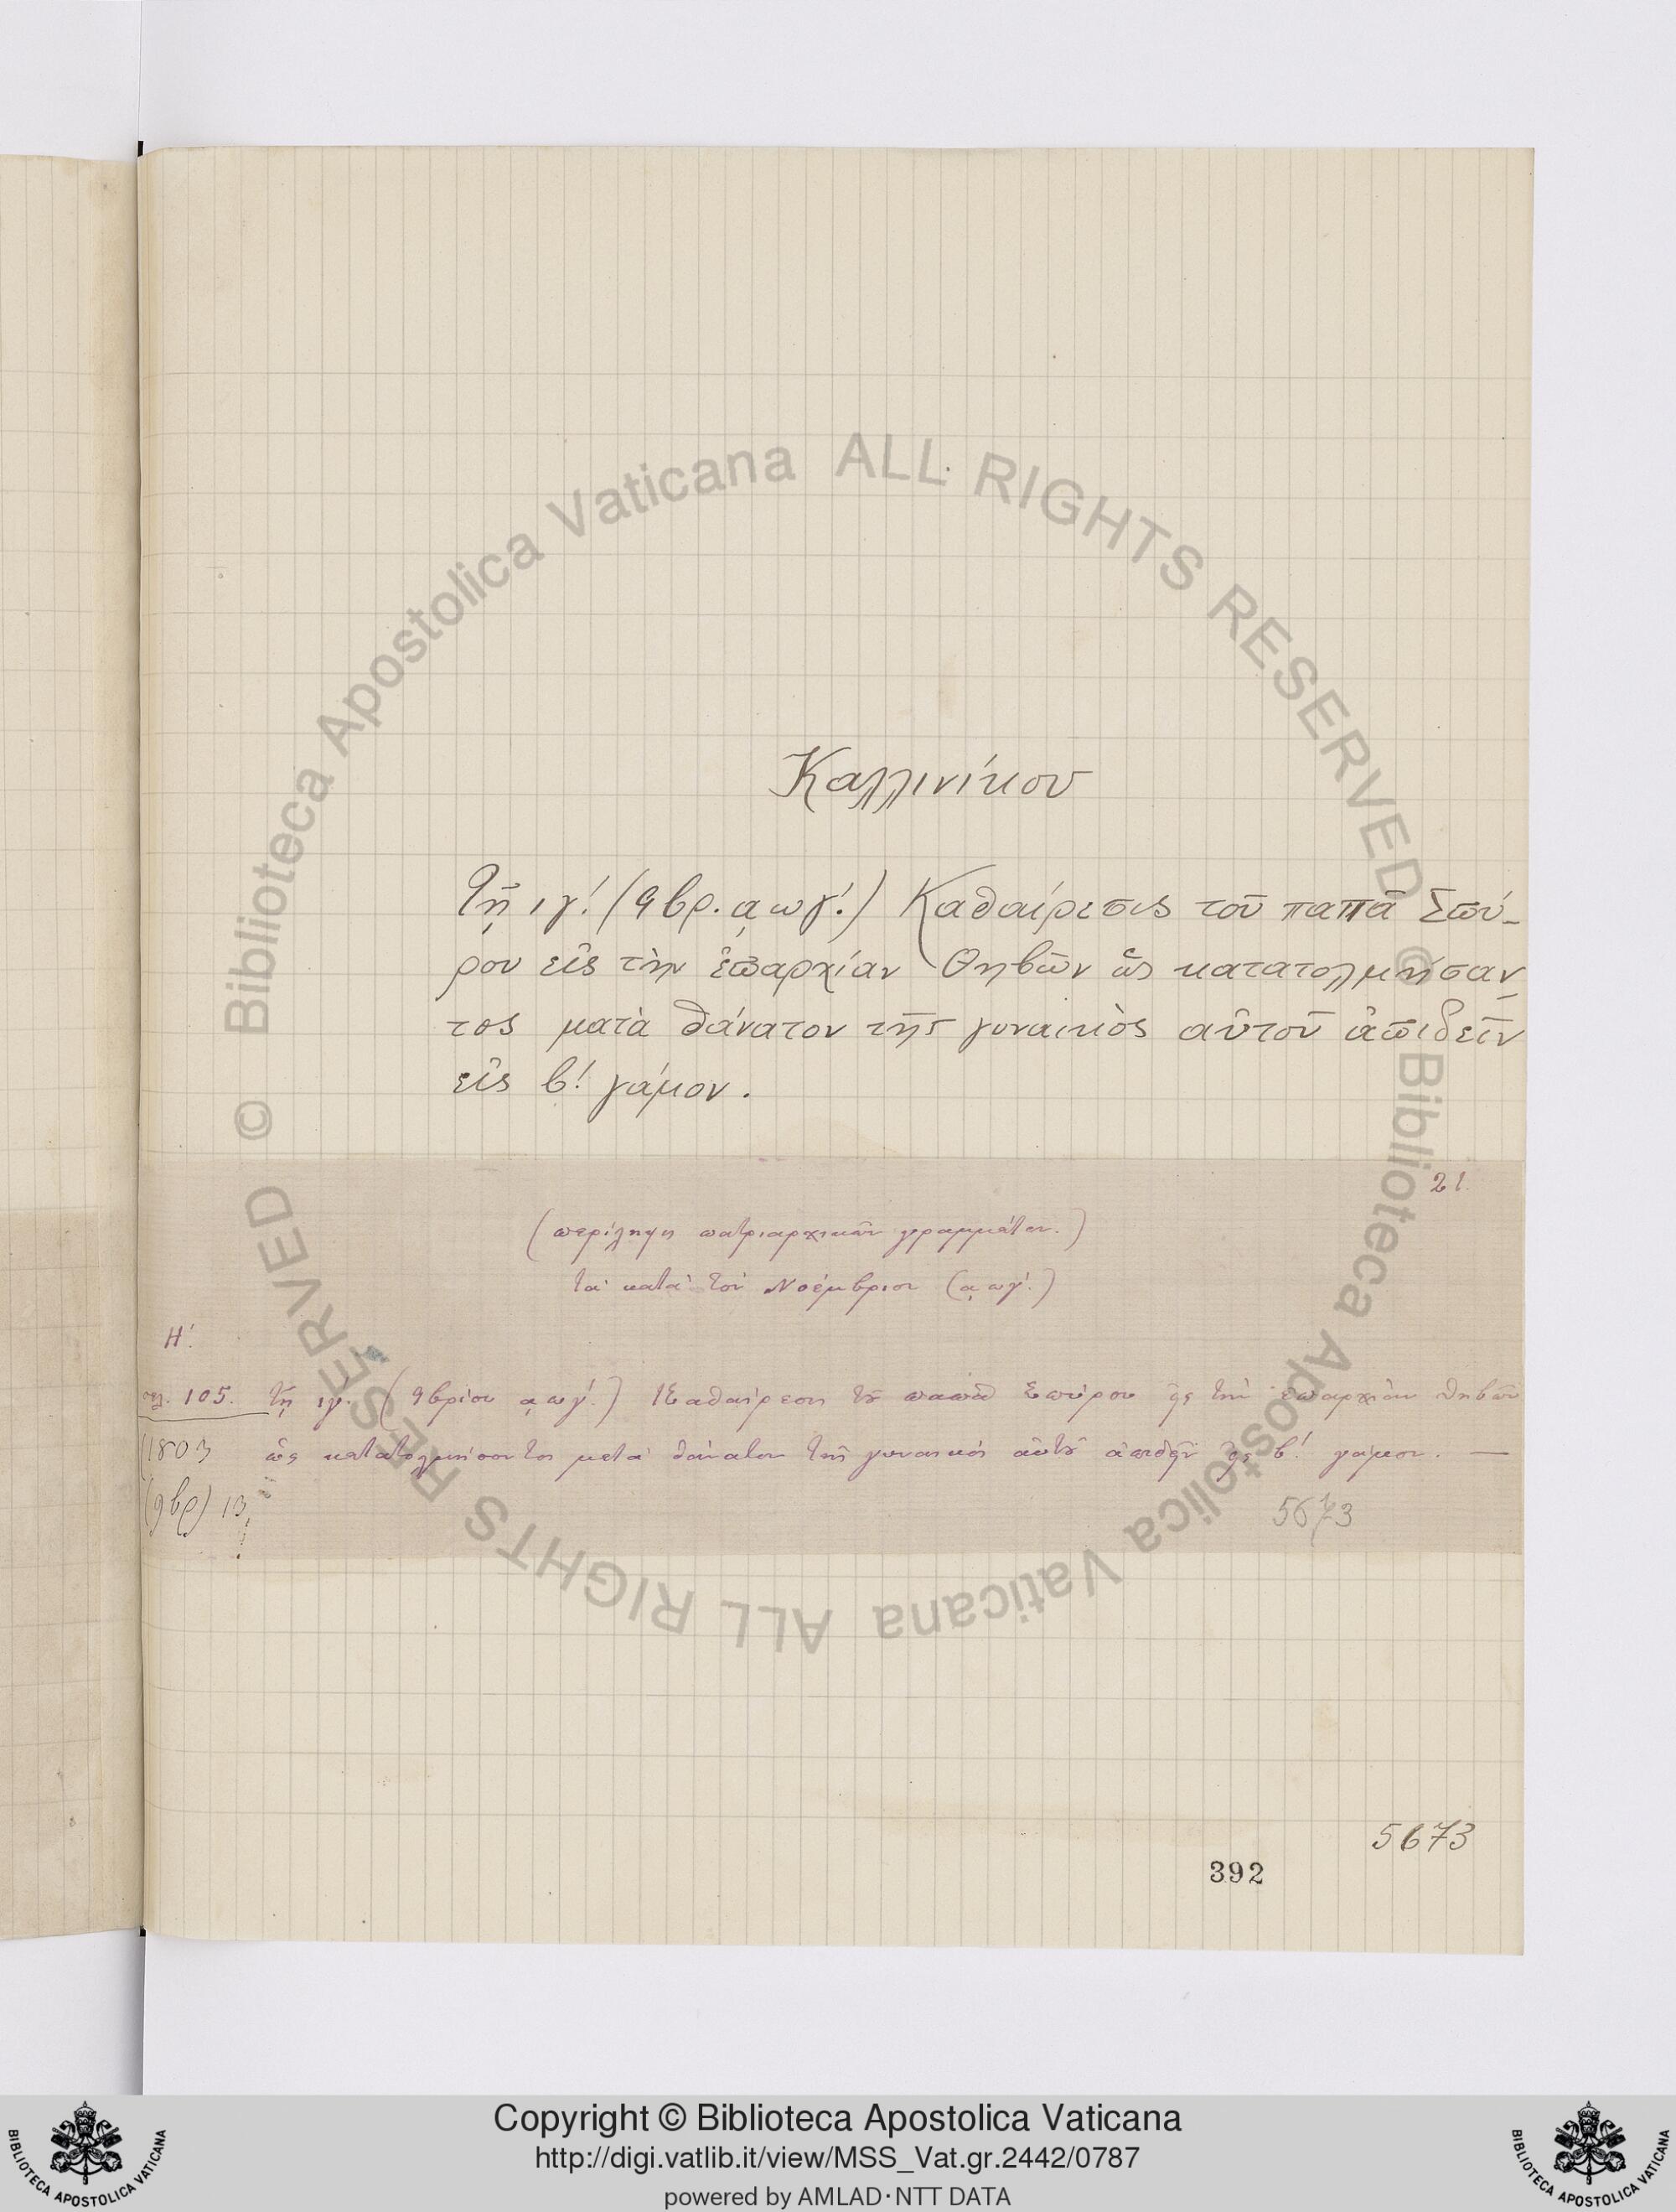 Καλλινίκου
Τῇ ιγʹ. (9βρ. ͵αωγʹ.) Καθαίρεσις τοῦ παπᾶ Σπύ-
ρου εἰς τὴν ἐπαρχίαν Θηβῶν ὡς κατατολμήσαν-
τος ματὰ θάνατον τῆς γυναικὸς αὐτοῦ ἀπιδεῖν
εἰς βʹ. γάμον.
21.
(περίληψη πατριαρχικῶν γραμμάτων.)
τὰ κατὰ τὸν Νοέμβριον (͵αωγʹ.)
Ηʹ.
σελ. 105. τῇ ιγ. (9βρίου ͵αωγʹ.) Καθαίρεση τοῦ παπᾶ Σπύρου εἰς τὴν ἐπαρχίαν Θηβῶν
(1803 ὡς κατατολμήσαντος μετὰ θάνατον τῆς γυναικὸς αὐτοῦ ἀπιδεῖν εἰς βʹ. γάμον. —
(9βρ) 13
5673
5673
392
Biblioteca Apostolica Vaticana ALL RIGHTS RESERVED ©
Biblioteca Apostolica Vaticana ALL RIGHTS RESERVED ©
Copyright © Biblioteca Apostolica Vaticana
http://digi.vatlib.it/view/MSS_Vat.gr.2442/0787
powered by AMLAD·NTT DATA
BIBLIOTECA APOSTOLICA VATICANA
BIBLIOTECA APOSTOLICA VATICANA